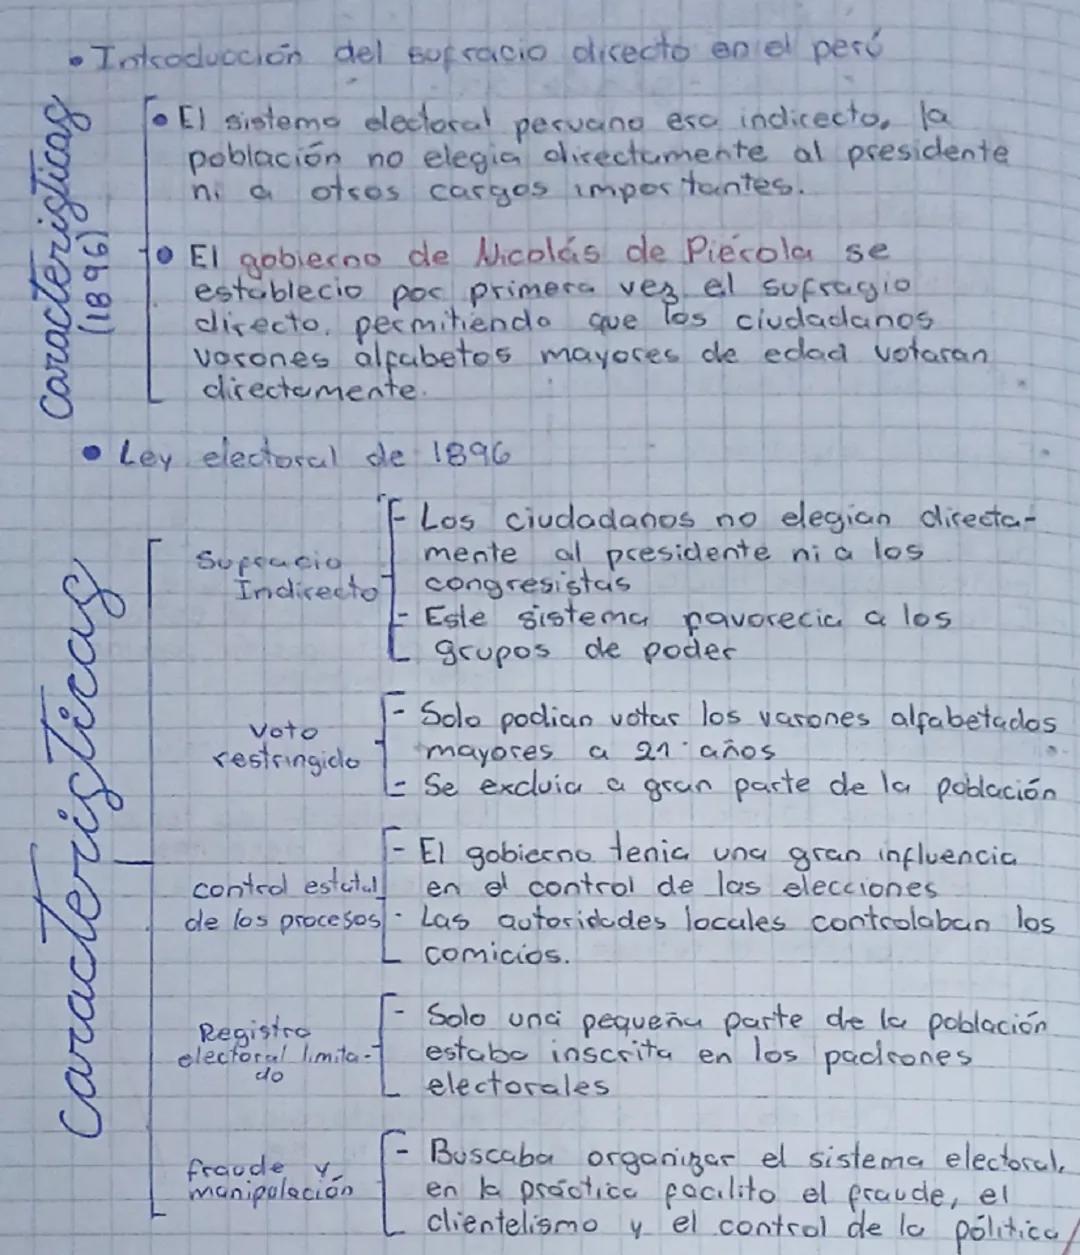 • Introducción del sufracio directo en el perú
caracteristicas
(1896)
• El sistema electoral peruano era indirecto, la
población no elegia directamente al presidente
ni a otros cargos importantes.
• El gobierno de Nicolás de Piérola se
establecio por primera vez el sufragio
directo, permitiendo que los ciudadanos
varones alfabetos mayores de edad votaran
directamente.
• Ley electoral de 1896
caracteristicas
Sufracio
Indirecto
- Los ciudadanos no elegian directa-
mente al presidente ni a los
congresistas
- Este sistema favorecia a los
grupos de poder
Voto
restringido
- Solo podian votar los varones alfabetados
mayores a 21 años
- Se excluia a gran parte de la población
control estatal
de los procesos
- El gobierno tenia una gran influencia
en el control de las elecciones
- Las autoridades locales controlaban los
comicios.
Registro
electoral limita-
do
- Solo una pequeña parte de la población
estaba inscrita en los padrones
electorales
fraude y
manipolación
- Buscaba organizar el sistema electoral,
en la práctica facilito el fraude, el
clientelismo y el control de la pólitica